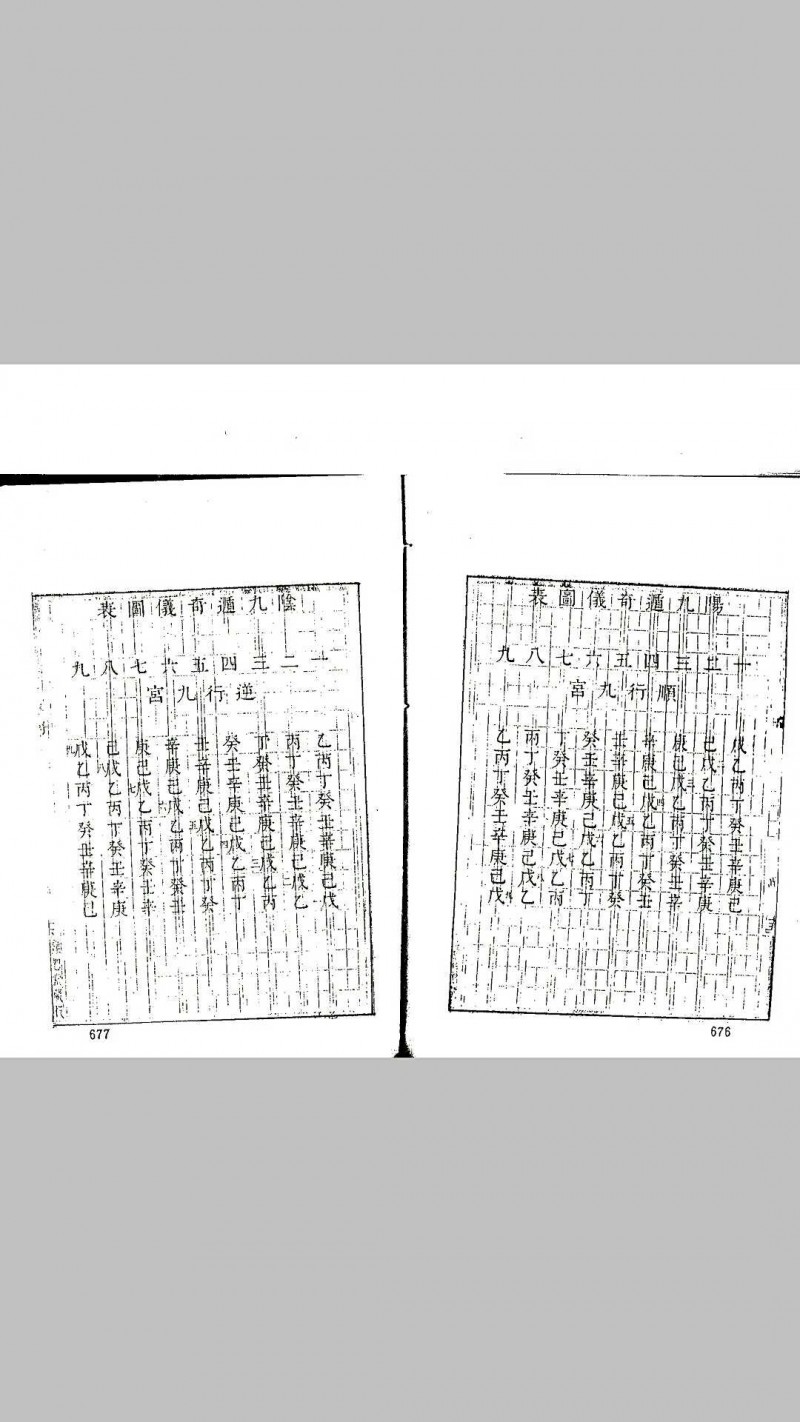 陽九遁奇儀圖表
一二三四五六七八九
順行九宮
戊乙丙丁癸壬辛庚己
己戊乙丙丁癸壬辛庚
庚己戊乙丙丁癸壬辛
辛庚己戊乙丙丁癸壬
壬辛庚己戊乙丙丁癸
癸壬辛庚己戊乙丙丁
丁癸壬辛庚己戊乙丙
丙丁癸壬辛庚己戊乙
乙丙丁癸壬辛庚己戊
676
陰九遁奇儀圖表
一二三四五六七八九
逆行九宮
乙丙丁癸壬辛庚己戊
丙丁癸壬辛庚己戊乙
丁癸壬辛庚己戊乙丙
癸壬辛庚己戊乙丙丁
壬辛庚己戊乙丙丁癸
辛庚己戊乙丙丁癸壬
庚己戊乙丙丁癸壬辛
己戊乙丙丁癸壬辛庚
戊乙丙丁癸壬辛庚己
677